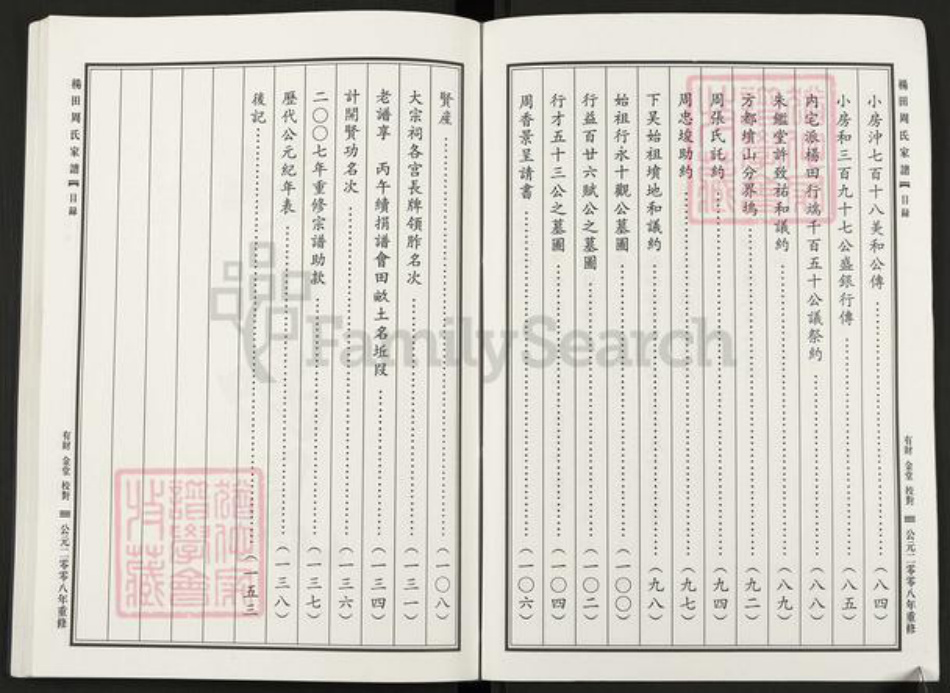 楊田周氏家譜 目錄
小房沖七百十八美和公傳（八四）
小房和三百九十七公盛銀行傳（八五）
內宅派楊田行端千百五十公議祭約（八八）
朱鑑堂許致祐和議約（八九）
方都墳山分界塢（九二）
周張氏託約（九四）
周忠埈助約（九七）
下吴始祖墳地和議約（九八）
始祖行永十觀公墓圖（一〇〇）
行益百廿六賦公之墓圖（一〇二）
行才五十三公之墓圖（一〇四）
周香景呈請書（一〇六）
有財 金堂 校對 公元二零零八年重修
賢産（一〇八）
大宗祠各宫長牌領胙名次（一三一）
老譜享 丙午續捐譜會田畝土名坵段（一三四）
計開賢功名次（一三六）
二〇〇七年重修宗譜助款（一三七）
歷代公元紀年表（一三八）
後記（一五三
楊田周氏家譜 目錄
有財 金堂 校對 公元二零零八年重修
FamilySearch
譜學會
收藏